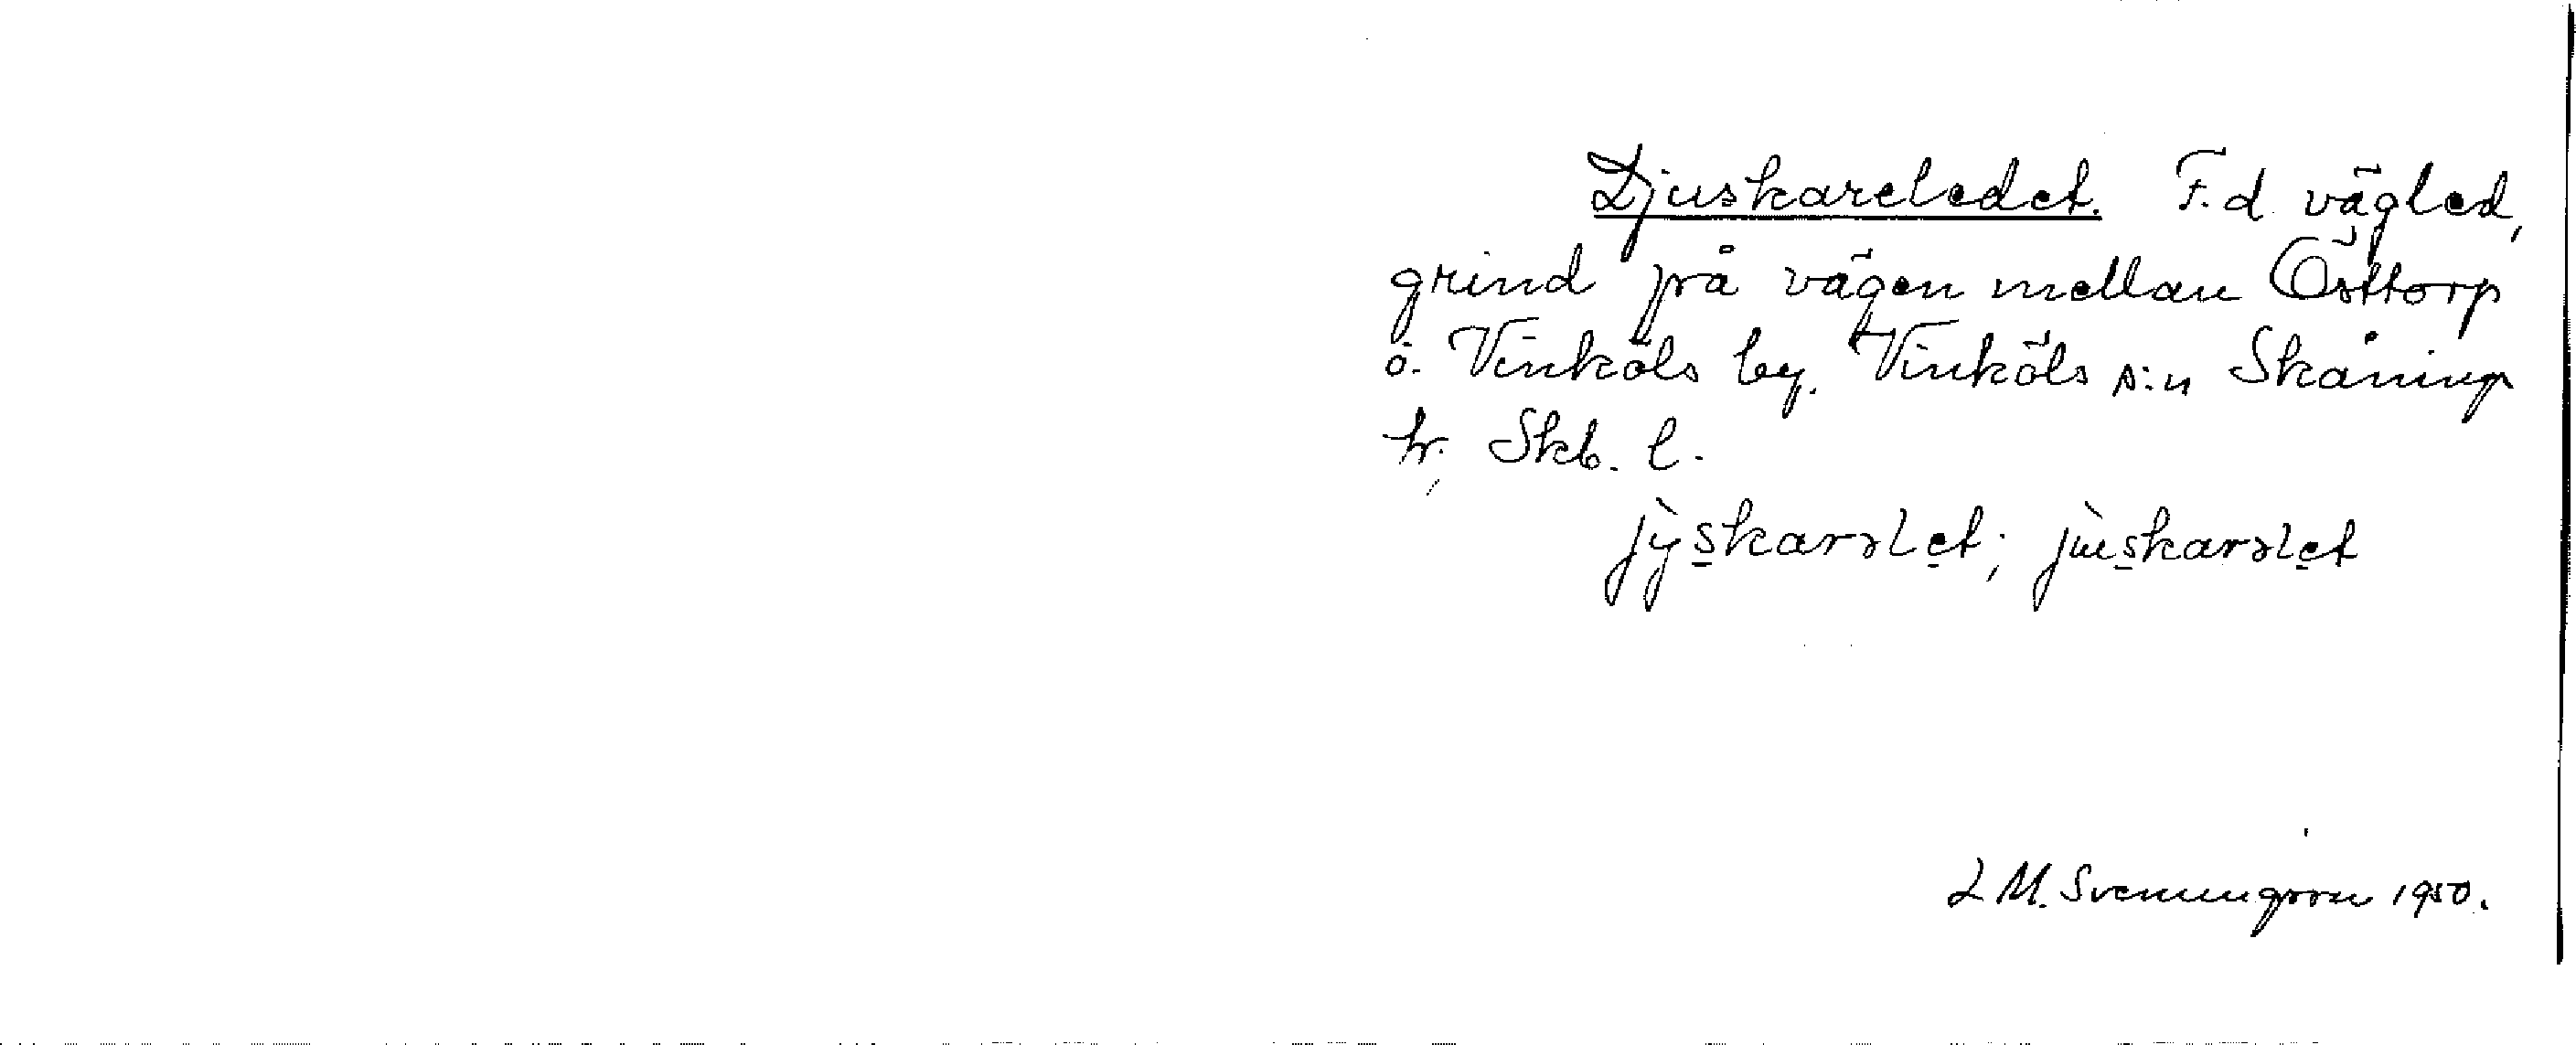 Djuskareledet. F.d. vägled,
grind på vägen mellan Östtorp
o. Vinköls by. Vinköls s:n Skånings
hr. Skb. l.
jỳskarəlet; jùskarəlet
L M. Svenungsson 1950.